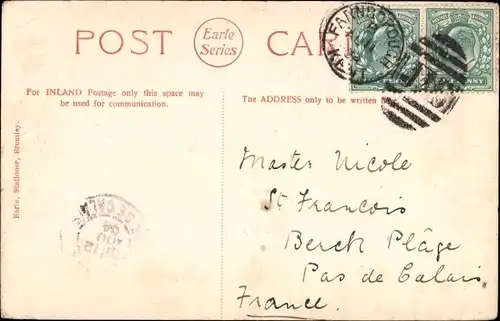 POST CAR
Earle
Series
For INLAND Postage only this space may
be used for communication.
The ADDRESS only to be written
FARNBOROUGH
Earle, Stationer, Bromley.
Master Nicole
St François
Berck Plâge
Pas de Calais
France.